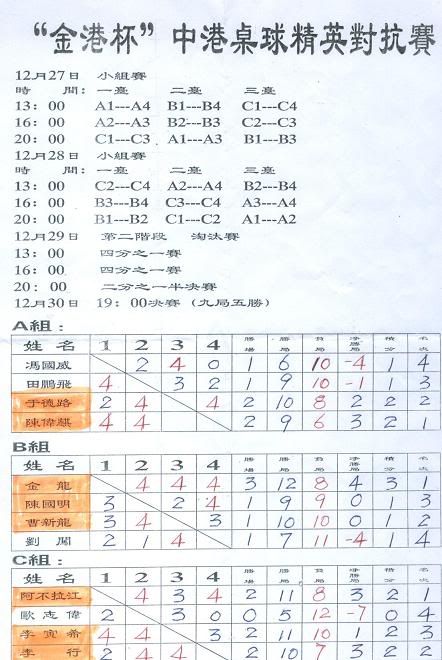 “金港杯”中港桌球精英對抗賽
12月27日 小組賽
時 間: 一臺 二臺 三臺
13: 00 A1---A4 B1---B4 C1---C4
16: 00 A2---A3 B2---B3 C2---C3
20: 00 C1---C3 A1---A3 B1---B3
12月28日 小組賽
時 間: 一臺 二臺 三臺
13: 00 C2---C4 A2---A4 B2---B4
16: 00 B3---B4 C3---C4 A3---A4
20: 00 B1---B2 C1---C2 A1---A2
12月29日 第二階段 淘汰賽
13: 00 四分之一賽
16: 00 四分之一賽
20: 00 二分之一半決賽
12月30日 19: 00決賽(九局五勝)
A組:
姓 名 1 2 3 4 勝場 勝局 負局 淨勝局 積分 名次
馮國威 2 4 0 1 6 10 -4 1 4
田鵬飛 4 3 2 1 9 10 -1 1 3
于德路 2 4 4 2 10 8 2 2 2
陳偉麒 4 4 2 9 6 3 2 1
B組
姓 名 1 2 3 4 勝場 勝局 負局 淨勝局 積分 名次
金 龍 4 4 4 3 12 8 4 3 1
陳國明 3 2 4 1 9 9 0 1 3
曹新龍 3 4 3 1 10 10 0 1 2
劉 闖 2 1 4 1 7 11 -4 1 4
C組:
姓 名 1 2 3 4 勝場 勝局 負局 淨勝局 積分 名次
阿不拉江 4 3 4 2 11 8 3 2 1
歐志偉 2 3 0 0 5 12 -7 0 4
李寅希 4 4 3 2 11 10 1 2 3
李 行 2 4 4 2 10 7 3 2 2